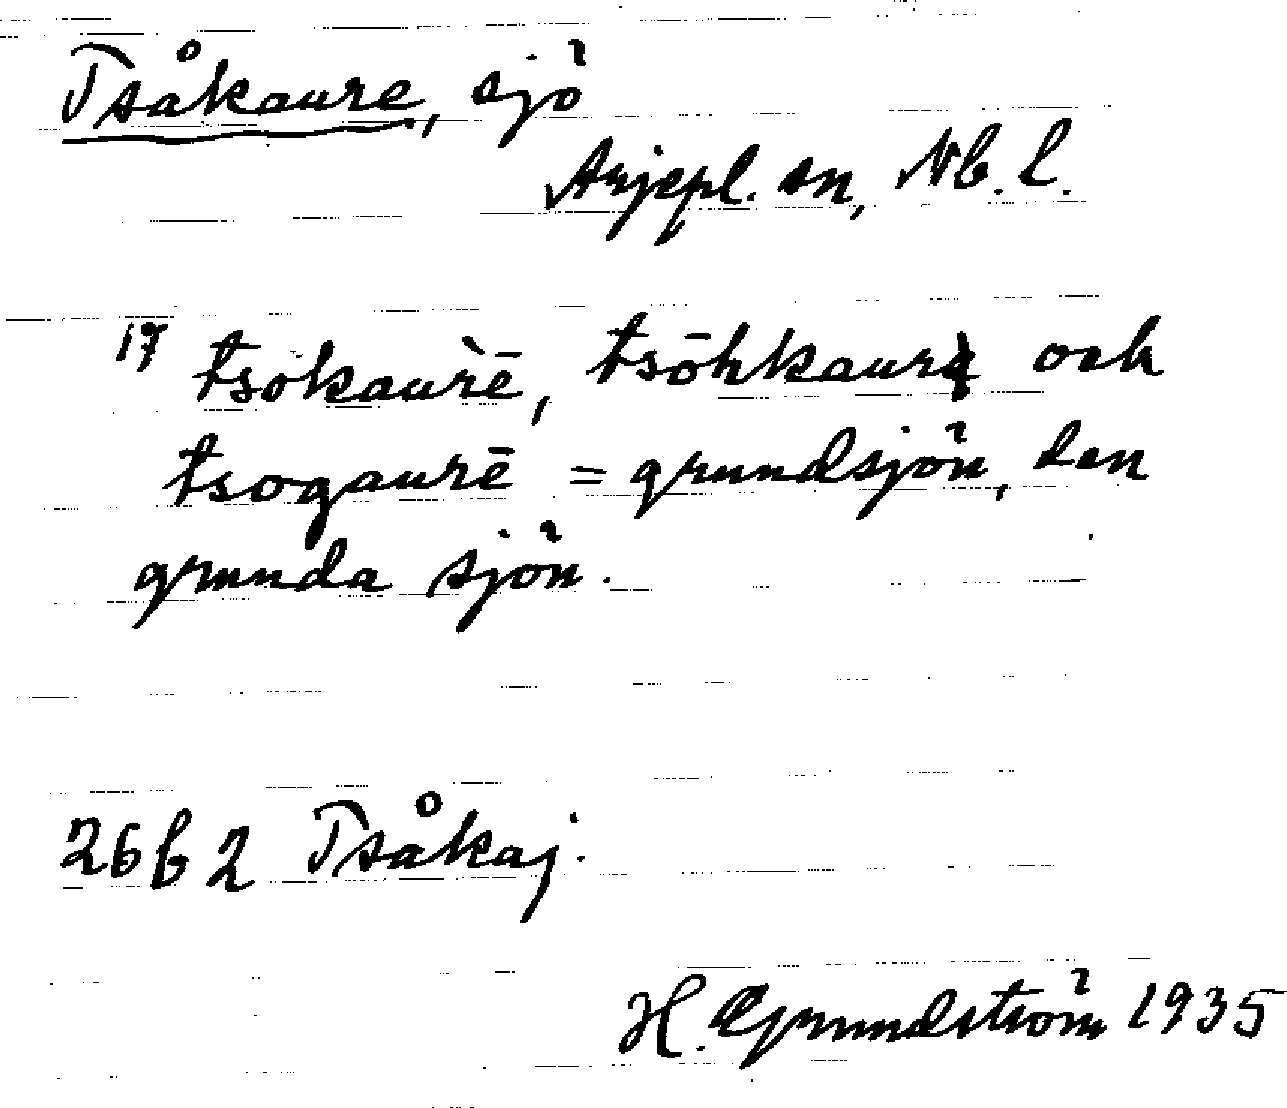 Tsåkaure, sjö
Arjepl. sn, Nb. l.
17 tsokaùrē, tsōhkaurę och
tsogaurē = grundsjön, den
grunda sjön.
26 b 2 Tsåkaj.
H. Grundström 1935